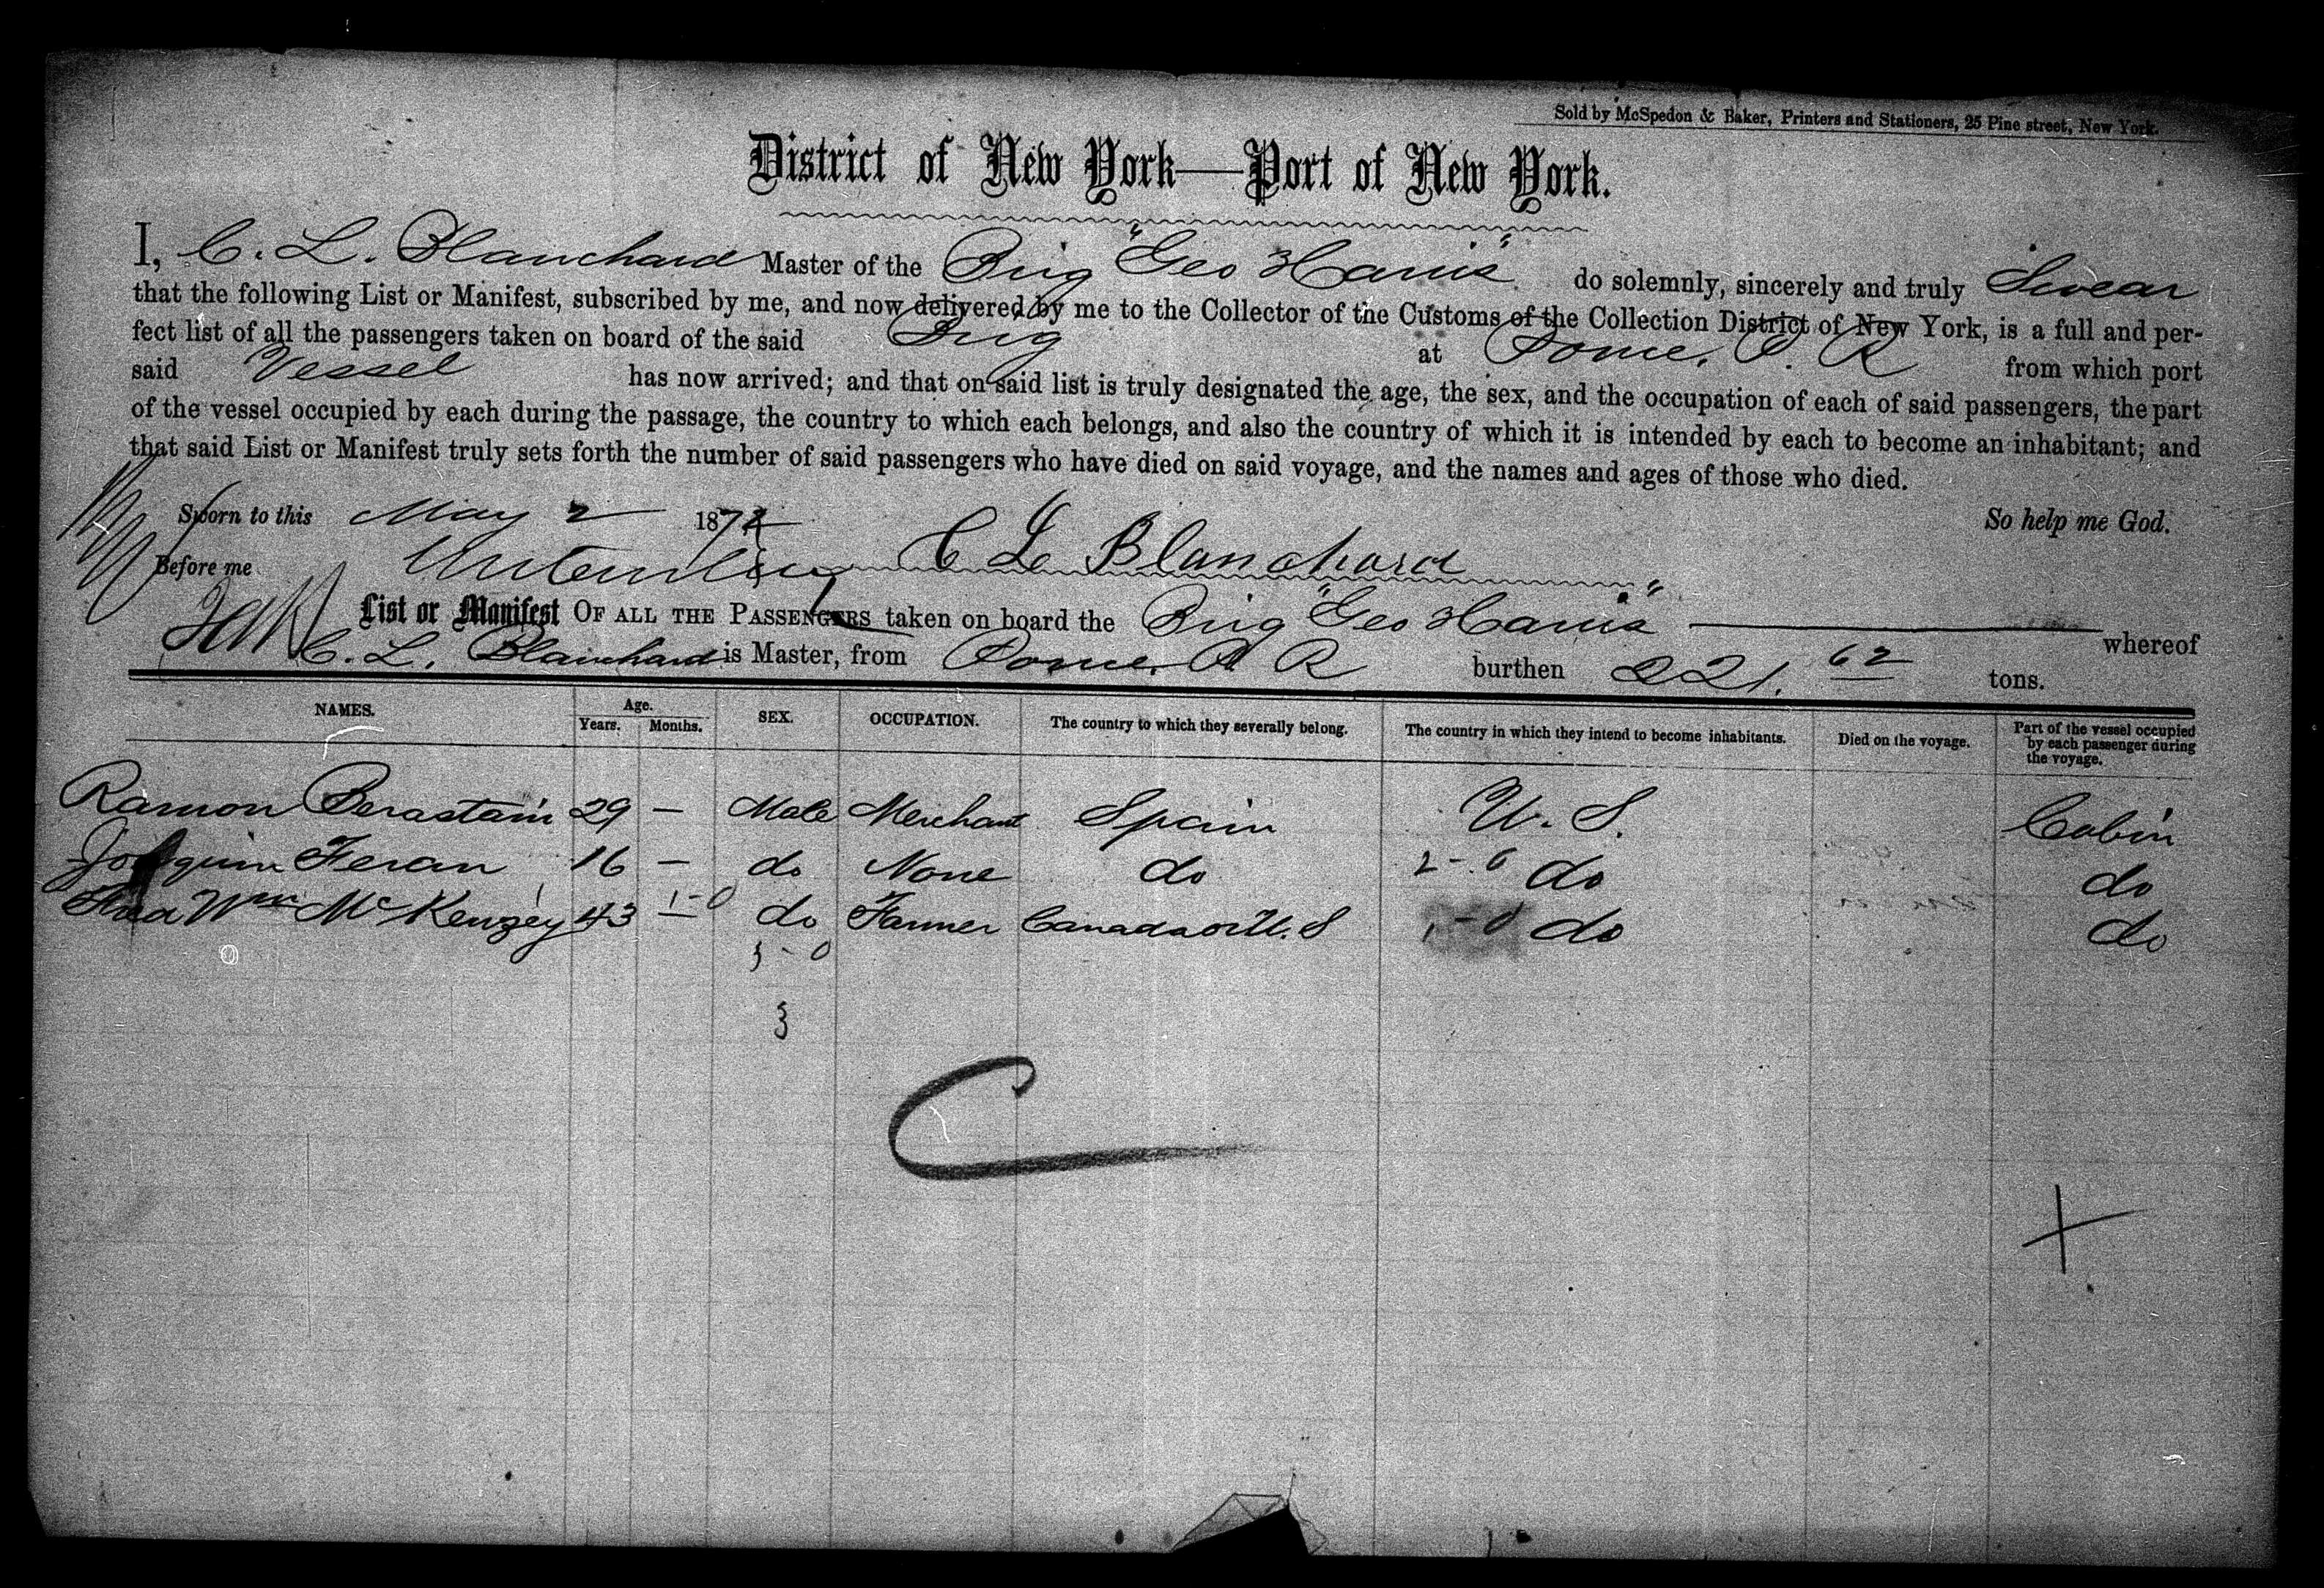 Sold by McSpedon & Baker, Printers and Stationers, 25 Pine street, New York.
District of New York—Port of New York.
I, C. L. Blanchard Master of the Brig "Geo Harris" do solemnly, sincerely and truly Swear
that the following List or Manifest, subscribed by me, and now delivered by me to the Collector of the Customs of the Collection District of New York, is a full and per-
fect list of all the passengers taken on board of the said Brig at Ponce, P. R from which port
said Vessel has now arrived; and that on said list is truly designated the age, the sex, and the occupation of each of said passengers, the part
of the vessel occupied by each during the passage, the country to which each belongs, and also the country of which it is intended by each to become an inhabitant; and
that said List or Manifest truly sets forth the number of said passengers who have died on said voyage, and the names and ages of those who died.
Sworn to this May 2 1872 So help me God.
Before me C L Blanchard
List or Manifest OF ALL THE PASSENGERS taken on board the Brig "Geo Harris" whereof
C. L. Blanchard is Master, from Ponce, P R burthen 221. 62 tons.
NAMES. Age. Years. Months. SEX. OCCUPATION. The country to which they severally belong. The country in which they intend to become inhabitants. Died on the voyage. Part of the vessel occupied by each passenger during the voyage.
Ramon Berastain 29 — Male Merchant Spain U. S. Cabin
Joaquin Feran 16 — do None do 2-0 do do
Wm McKenzey 43 1-0 do Farmer Canada or U. S 1-0 do do
3-0
3
C